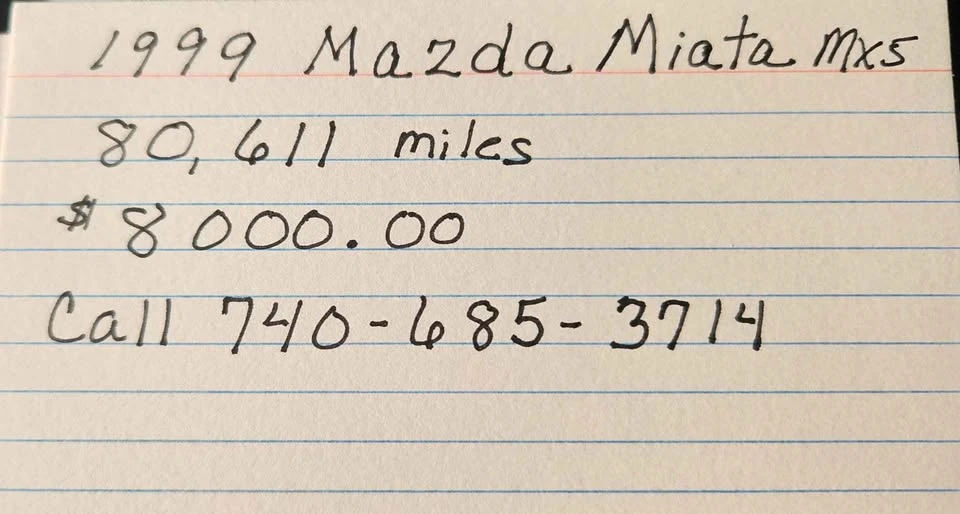 1999 Mazda Miata Mx5
80,611 miles
$8000.00
Call 740-685-3714